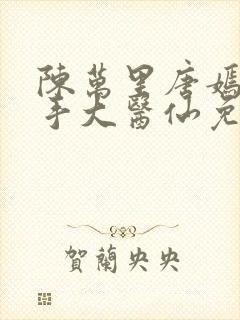 陳萬里唐嫣
手大醫仙免
賀蘭央央